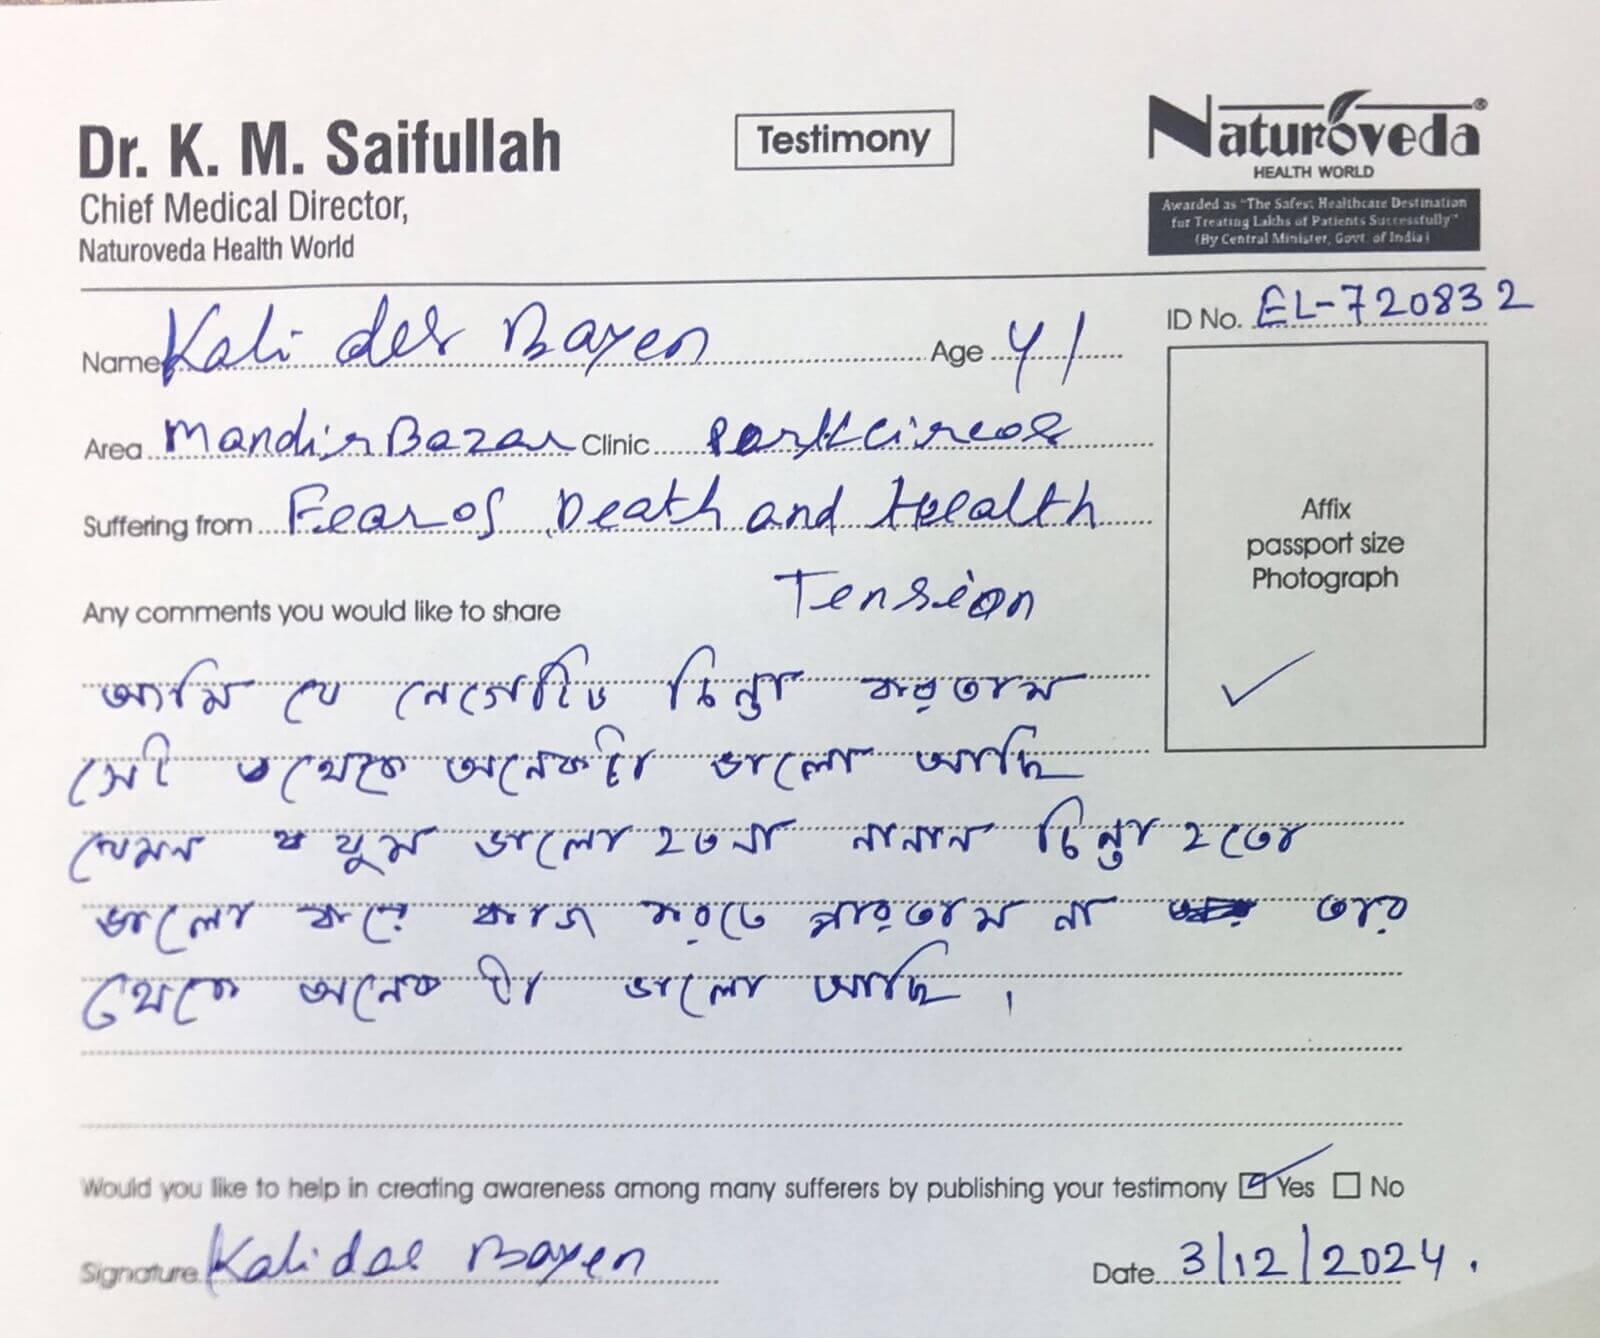 Dr. K. M. Saifullah
Chief Medical Director,
Naturoveda Health World
Testimony
Naturoveda®
HEALTH WORLD
Awarded as "The Safest Healthcare Destination
for Treating Lakhs of Patients Successfully"
(By Central Minister, Govt. of India)
ID No. EL-720832
Name Kali das Bayen Age 41
Area Mandir Bazar Clinic parkcircos
Suffering from Fear of Death and Health
Tension
Any comments you would like to share
Affix
passport size
Photograph
আমি যে নেগেটিভ চিন্তা করতাম
সেই থেকে অনেকটা ভালো আছি
যেমন ঘুম ভালো হতনা নানান চিন্তা হতো
ভালো করে কাজ করতে পারতাম না তার
থেকে অনেক টা ভালো আছি।
Would you like to help in creating awareness among many sufferers by publishing your testimony Yes No
Signature Kali das Bayen Date 3/12/2024.